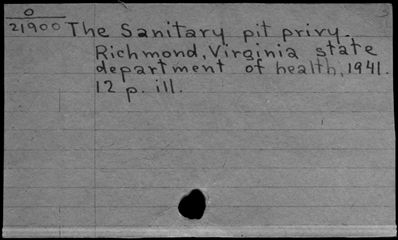 0
21900 The Sanitary pit privy.
Richmond, Virginia state
department of health, 1941.
12 p. ill.